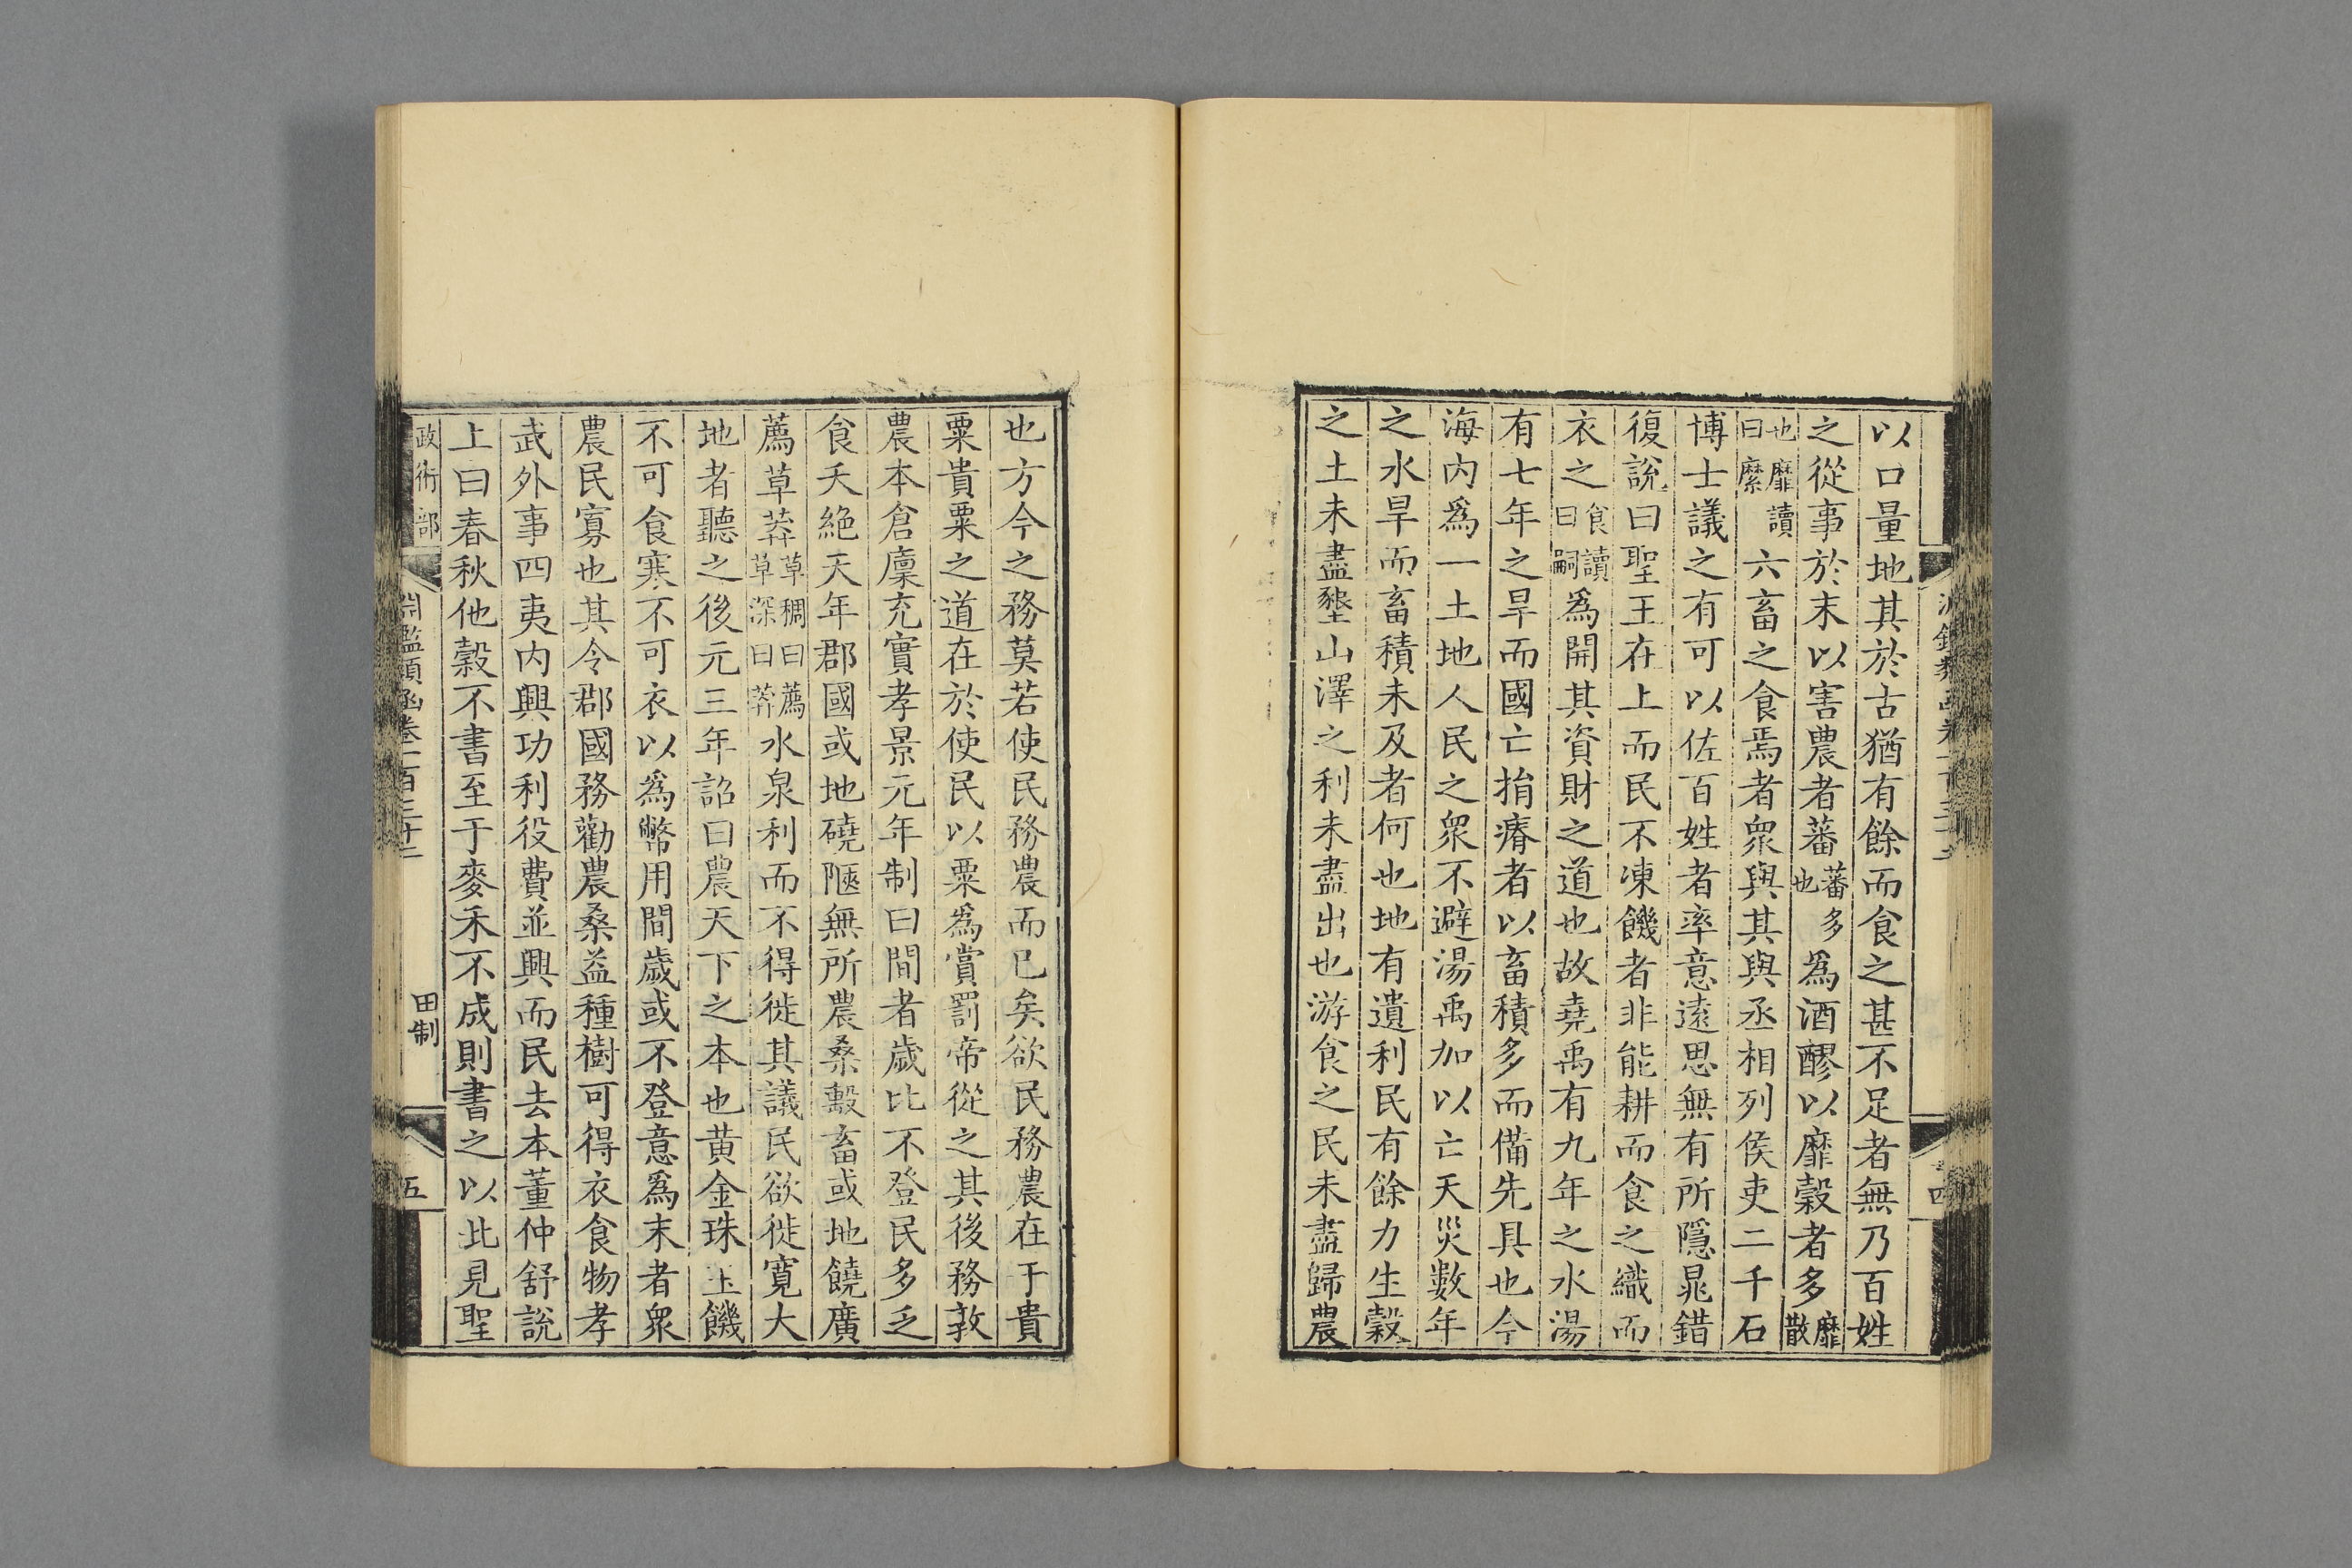 以口量地其於古猶有餘而食之甚不足者無乃百姓
之從事於末以害農者蕃蕃多也爲酒醪以靡穀者多靡散
也靡讀曰縻六畜之食焉者衆與其與丞相列侯吏二千石
博士議之有可以佐百姓者率意遠思無有所隱晁錯
復說曰聖王在上而民不凍饑者非能耕而食之織而
衣之食讀曰嗣爲開其資財之道也故堯禹有九年之水湯
有七年之旱而國亡捐瘠者以畜積多而備先具也今
海内爲一土地人民之衆不避湯禹加以亡天災數年
之水旱而畜積未及者何也地有遺利民有餘力生穀
之土未盡墾山澤之利未盡出也游食之民未盡歸農
也方今之務莫若使民務農而已矣欲民務農在于貴
粟貴粟之道在於使民以粟爲賞罰帝從之其後務敦
農本倉廩充實孝景元年制曰間者歲比不登民多乏
食夭絶天年郡國或地磽陿無所農桑毄畜或地饒廣
薦草莽草稠曰薦草深曰莽水泉利而不得徙其議民欲徙寛大
地者聽之後元三年詔曰農天下之本也黄金珠玉饑
不可食寒不可衣以爲幣用間歲或不登意爲末者衆
農民寡也其令郡國務勸農桑益種樹可得衣食物孝
武外事四夷内興功利役費並興而民去本董仲舒說
上曰春秋他穀不書至于麥禾不成則書之以此見聖
政術部 淵鑑類函卷一百三十二 田制 五